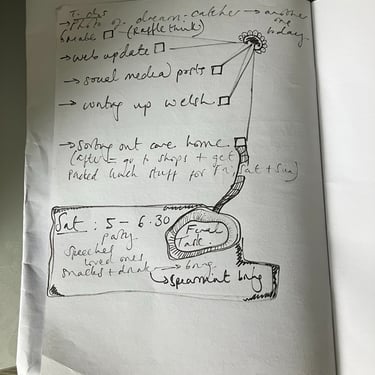 → Photo of dream-catcher → another one today.
(Raffle think)
→ web update
→ social media posts
→ writing up welsh
→ sorting out care home
(after = go to shops + get
packed lunch stuff for Fri, Sat + Sun)
Sat : 5 - 6.30
party
speeches
loved ones
snacks + drinks → bring
↳ spearmint bring
Final
Task!